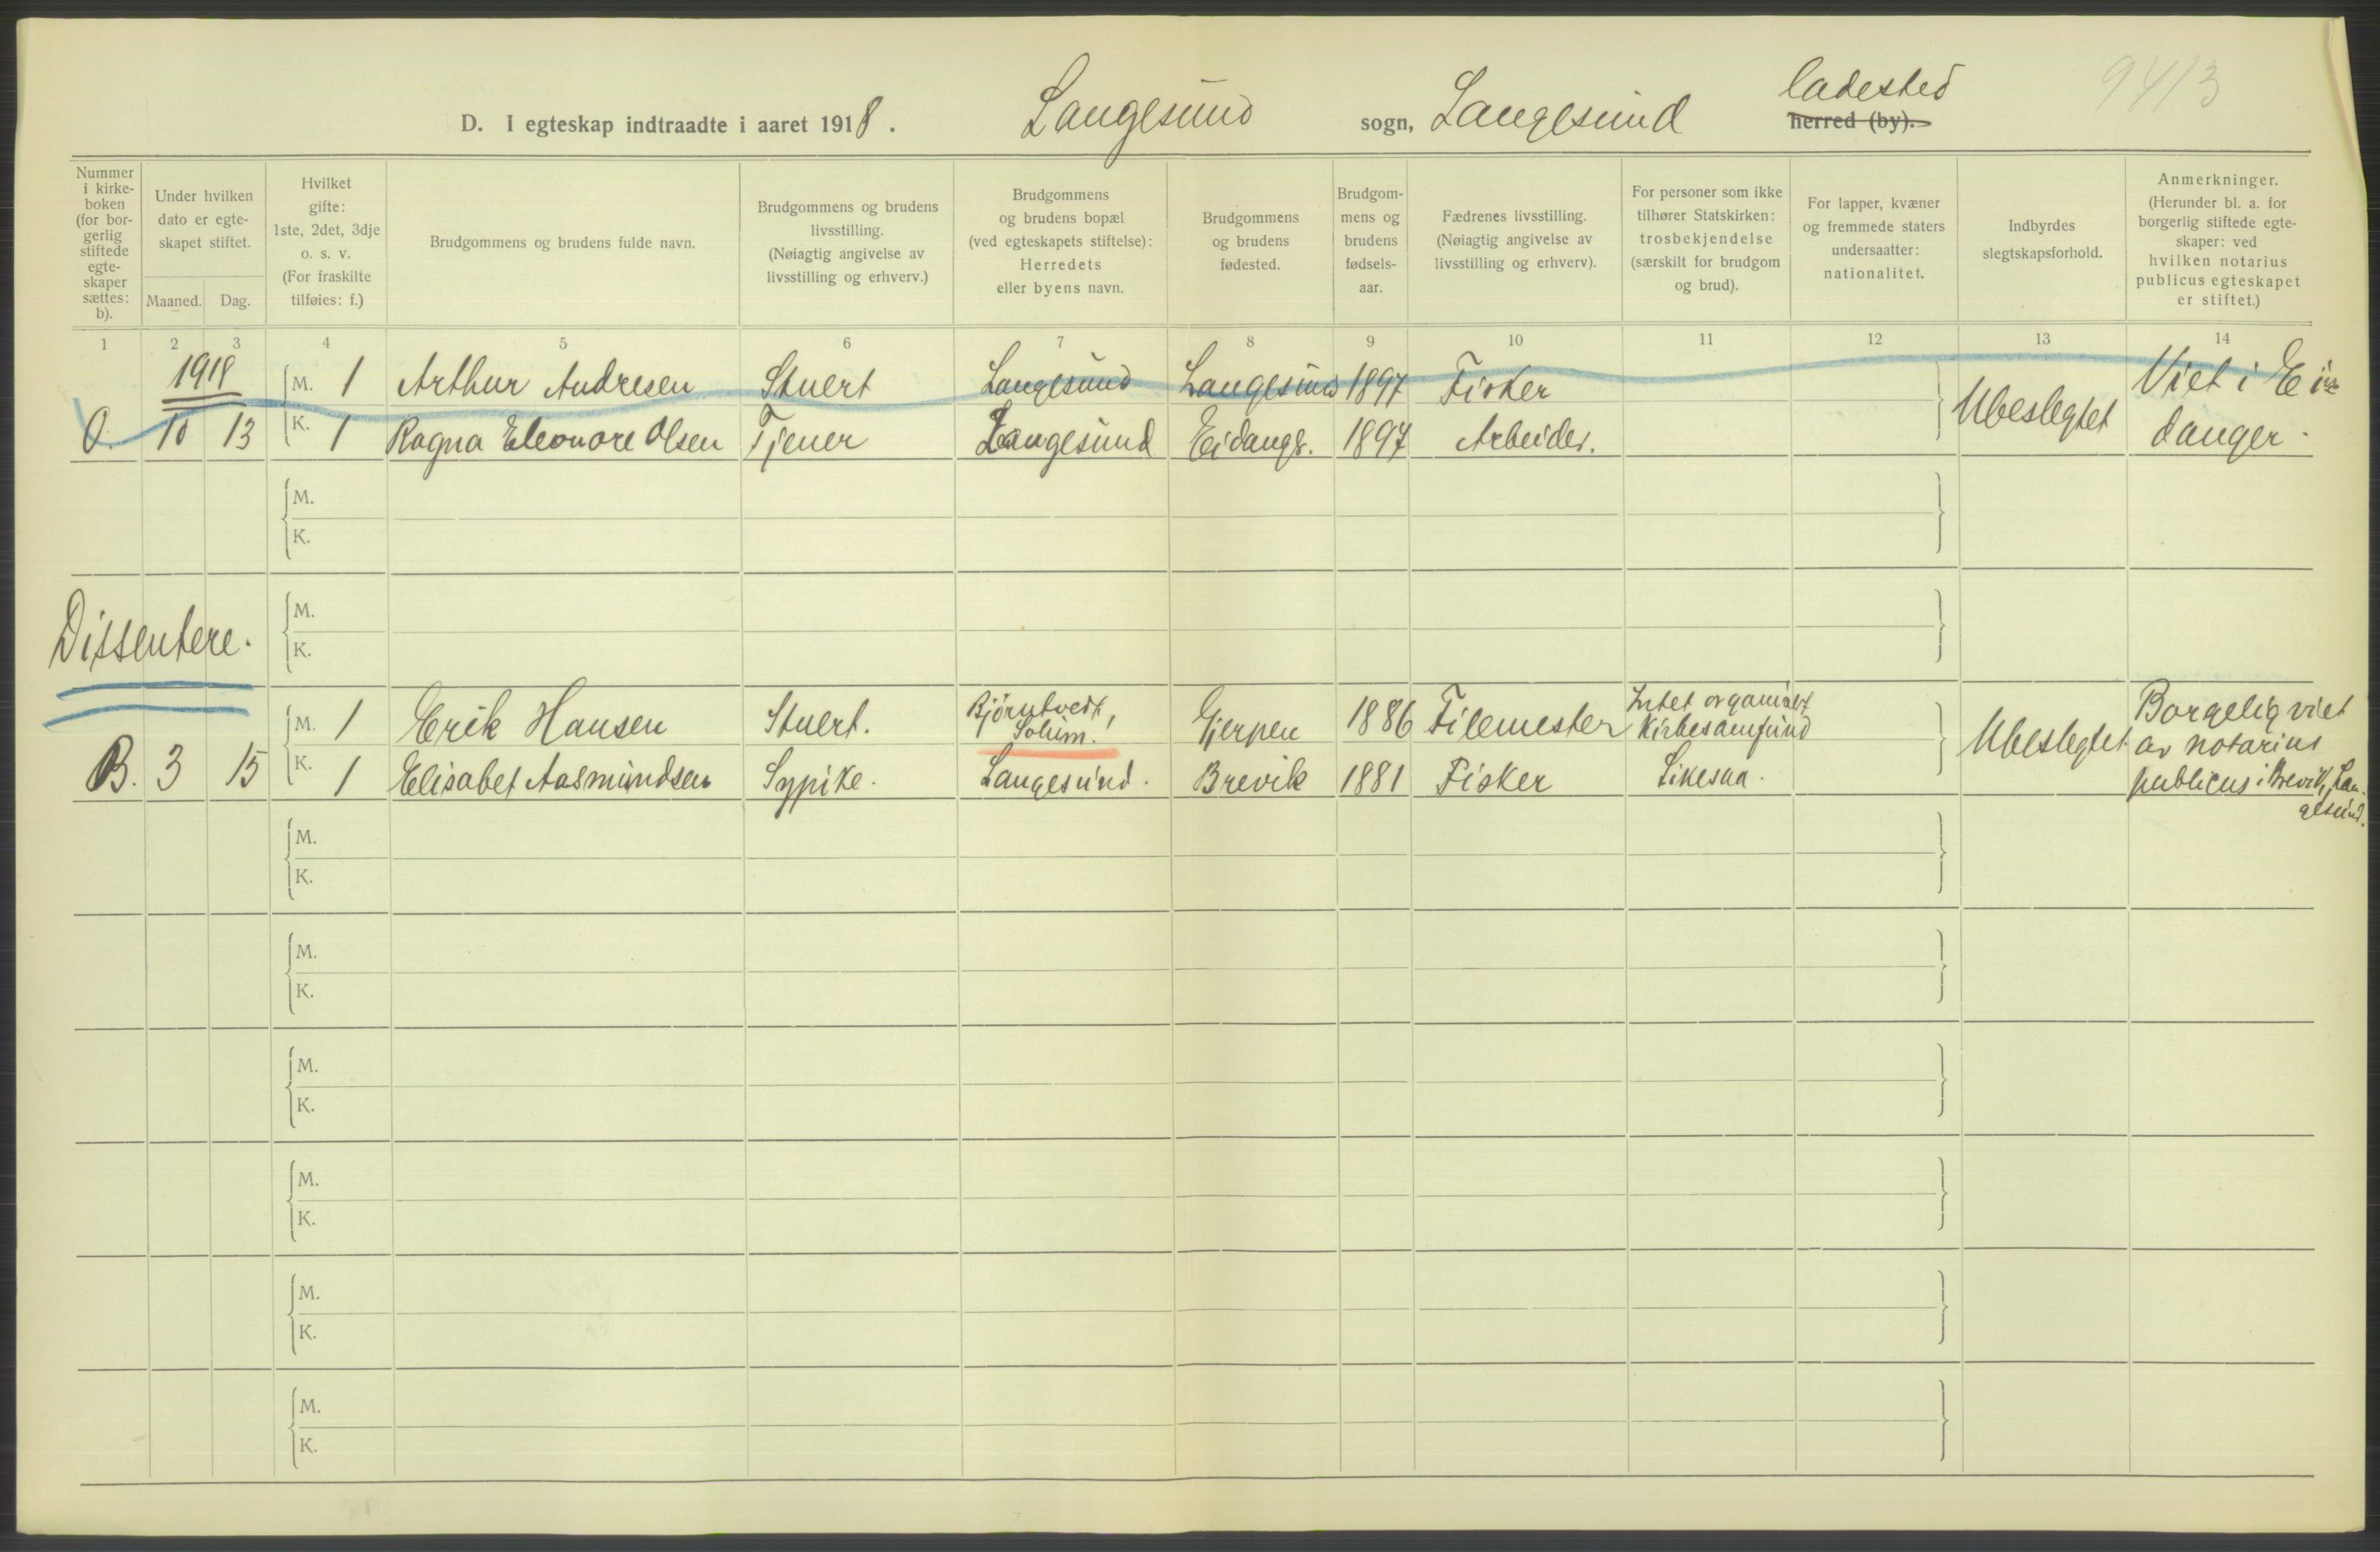 ladested
9413
D. I egteskap indtraadte i aaret 1918. Langesund sogn, Langesund herred (by).
Nummer i kirke-boken (for bor-gerlig stiftede egte-skaper sættes: b).
Under hvilken dato er egte-skapet stiftet.
Maaned. Dag.
Hvilket gifte: 1ste, 2det, 3dje o. s. v. (For fraskilte tilføies: f.)
Brudgommens og brudens fulde navn.
Brudgommens og brudens livsstilling. (Nøiagtig angivelse av livsstilling og erhverv.)
Brudgommens og brudens bopæl (ved egteskapets stiftelse): Herredets eller byens navn.
Brudgommens og brudens fødested.
Brudgom-mens og brudens fødsels-aar.
Fædrenes livsstilling. (Nøiagtig angivelse av livsstilling og erhverv).
For personer som ikke tilhører Statskirken: trosbekjendelse (særskilt for brudgom og brud).
For lapper, kvæner og fremmede staters undersaatter: nationalitet.
Indbyrdes slegtskapsforhold.
Anmerkninger. (Herunder bl. a. for borgerlig stiftede egte-skaper: ved hvilken notarius publicus egteskapet er stiftet.)
1 2 3 4 5 6 7 8 9 10 11 12 13 14
1918
M. 1 Arthur Andresen Stuert Langesund Langesund 1897 Fisker Ubeslegtet Viet i Ei
O. 10 13 K. 1 Ragna Eleonore Olsen Tjener Langesund Eidang. 1897 Arbeider. danger.
M.
K.
Dissentere.
M.
K.
M. 1 Erik Hansen Stuert. Bjørntvedt, Solum. Gjerpen 1886 Filemester Intet organisert Kirkesamfund Ubeslegtet Borgelig viet
B. 3 15 K. 1 Elisabet Aasmundsen Sypike. Langesund. Brevik 1881 Fisker Likesaa. av notarius
publicus i Brevik, Lan-
gesund.
M.
K.
M.
K.
M.
K.
M.
K.
M.
K.
M.
K.